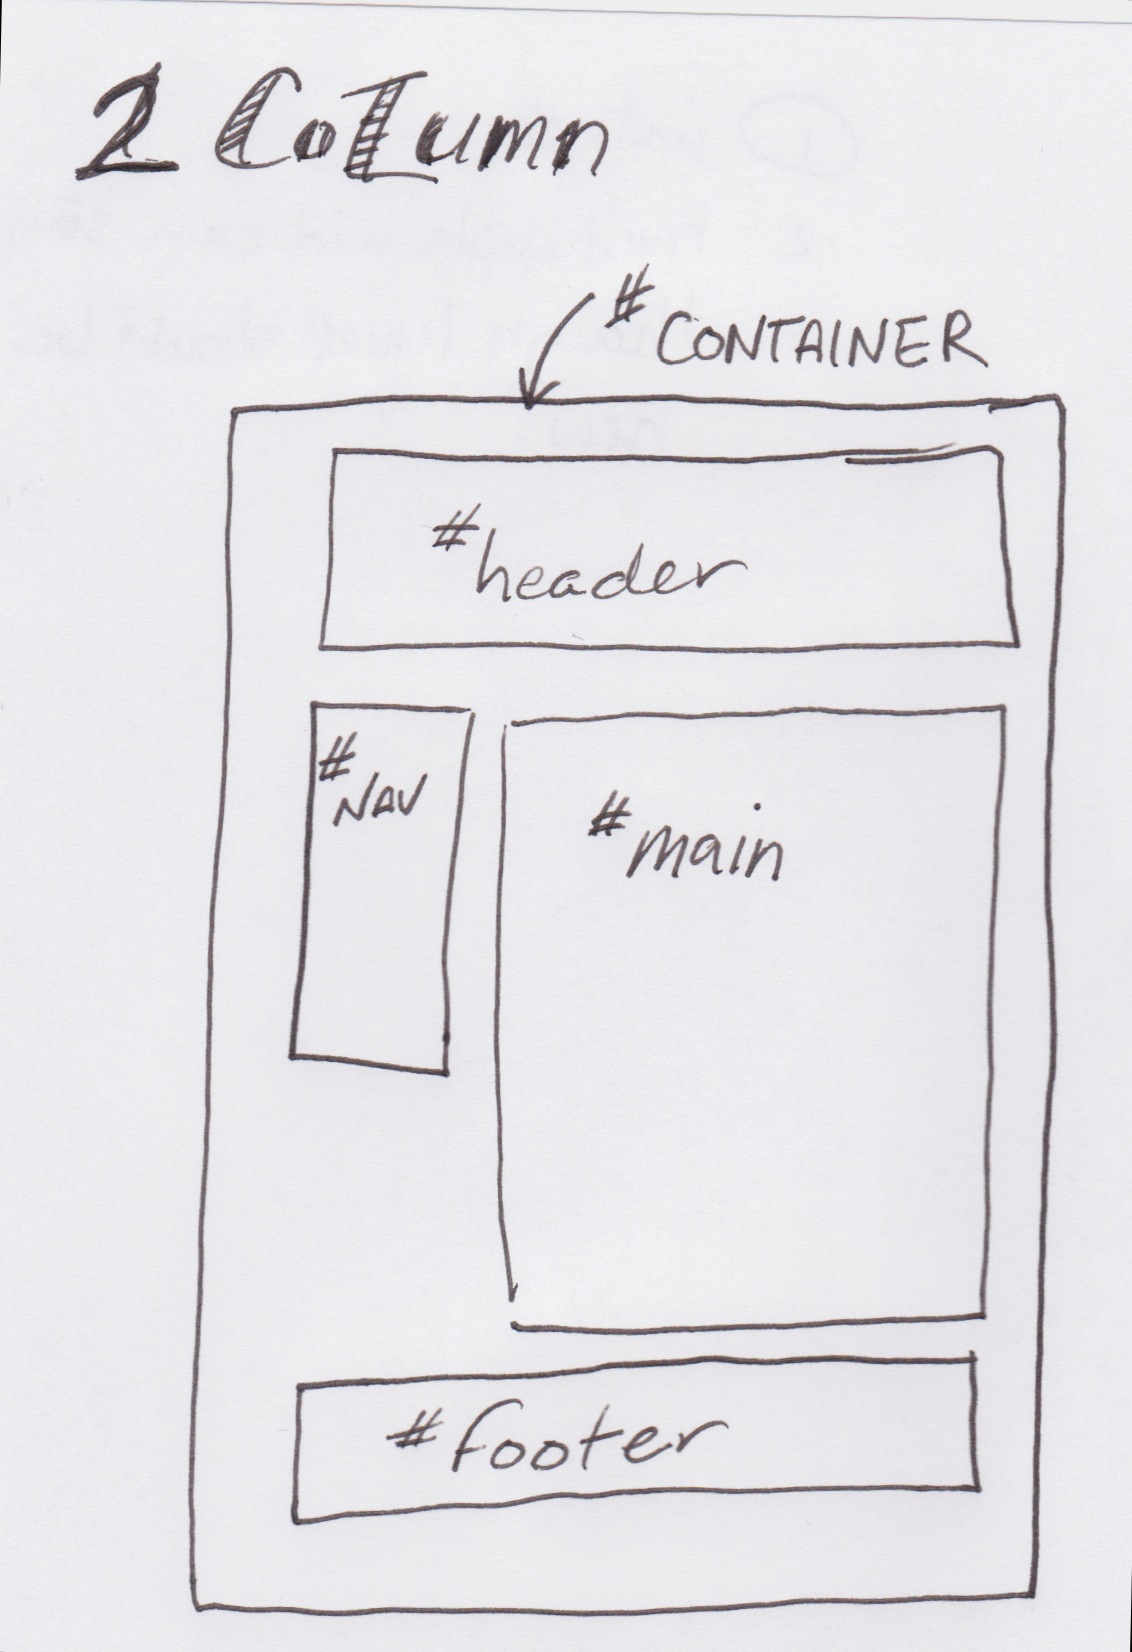 2 Column
# CONTAINER
#header
#NAV
#main
#footer